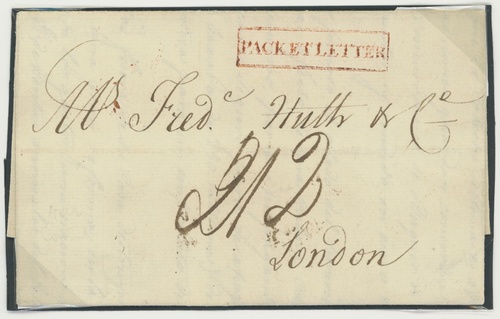 PACKET LETTER
Mrs Fredc Huth & Co
2/2
London